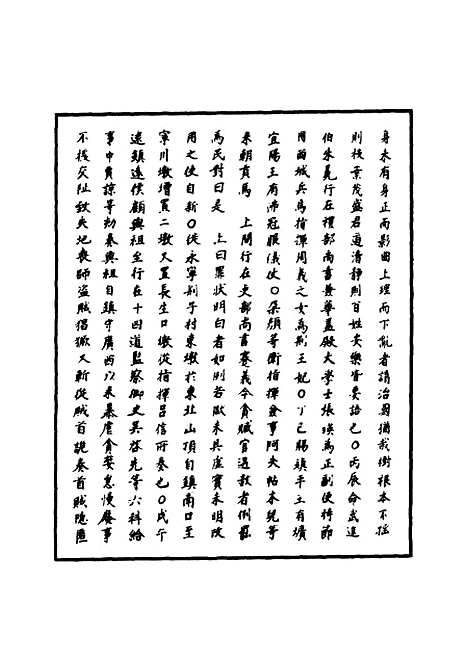 身未有身正而影曲上理而下亂者請治國猶栽樹根本不搖
則枝葉茂盛君道清靜則百姓安樂皆要語也○丙辰命武進
伯朱冕行在禮部尚書兼華蓋殿大學士張瑛為正副使持節
冊西城兵馬指揮周義之女為荊王妃○丁巳賜鎮平王有爌
宜陽王有 冠服儀仗○朵顏等衛指揮僉事阿夫帖木兒等
來朝貢馬 上問行在吏部尚書蹇義今貪贓官遇赦者例罷
為民對曰是 上曰罪狀明白者如則若歐未具虛實未明故
用之使自新○從永寧荊子村東墩於東北山頂自鎮南口至
寧川墩增置二墩又置長生口墩從指揮呂信所奏也○戊午
逮鎮遠侯顧興祖至行在十四道監察御史吳啓先等六科給
事中賈諒等劾奏興祖自鎮守廣西以來暴虐貪婪怠慢廢事
不援交阯致失地喪師盜賊猖獗又斬從賊首詭奏首賊隱匿